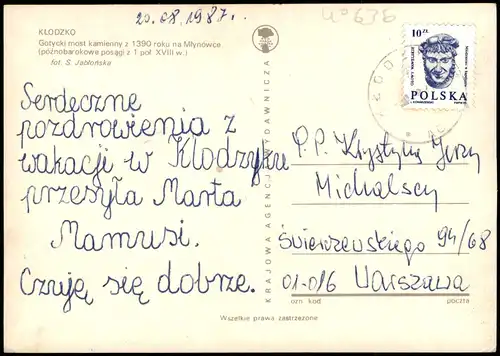 20.08.1987r.
40636
KŁODZKO
Gotycki most kamienny z 1390 roku na Młynówce
(późnobarokowe posągi z 1 poł. XVIII w.)
fot. S. Jabłońska
Serdeczne
pozdrowienia z
wakacji w Kłodzku
przesyła Marta
Mamusi.
Czuję się dobrze.
KRAJOWA AGENCJA WYDAWNICZA
10 ZŁ
POLSKA
P.P. Krystyna Jerzy
Michalscy
Świerczewskiego 94/68
01-016 Warszawa
ozn kod
poczta
Wszelkie prawa zastrzeżone